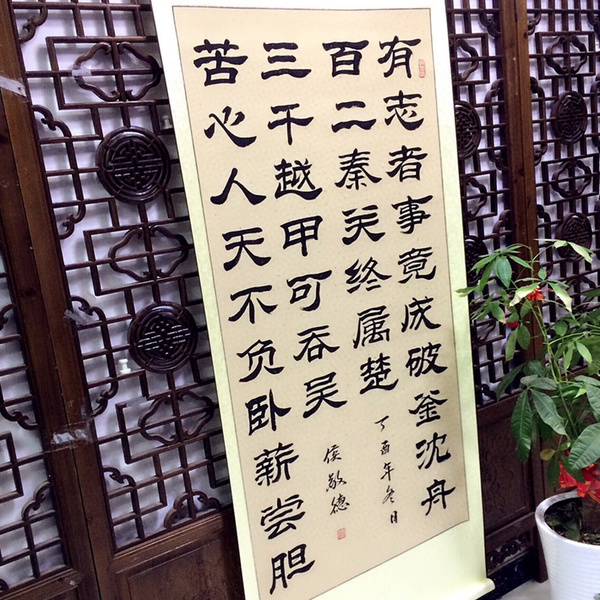 有志者事竟成破釜沈舟
百二秦关终属楚
丁酉年冬日
苦心人天不负卧薪尝胆
三千越甲可吞吴
侯敬德